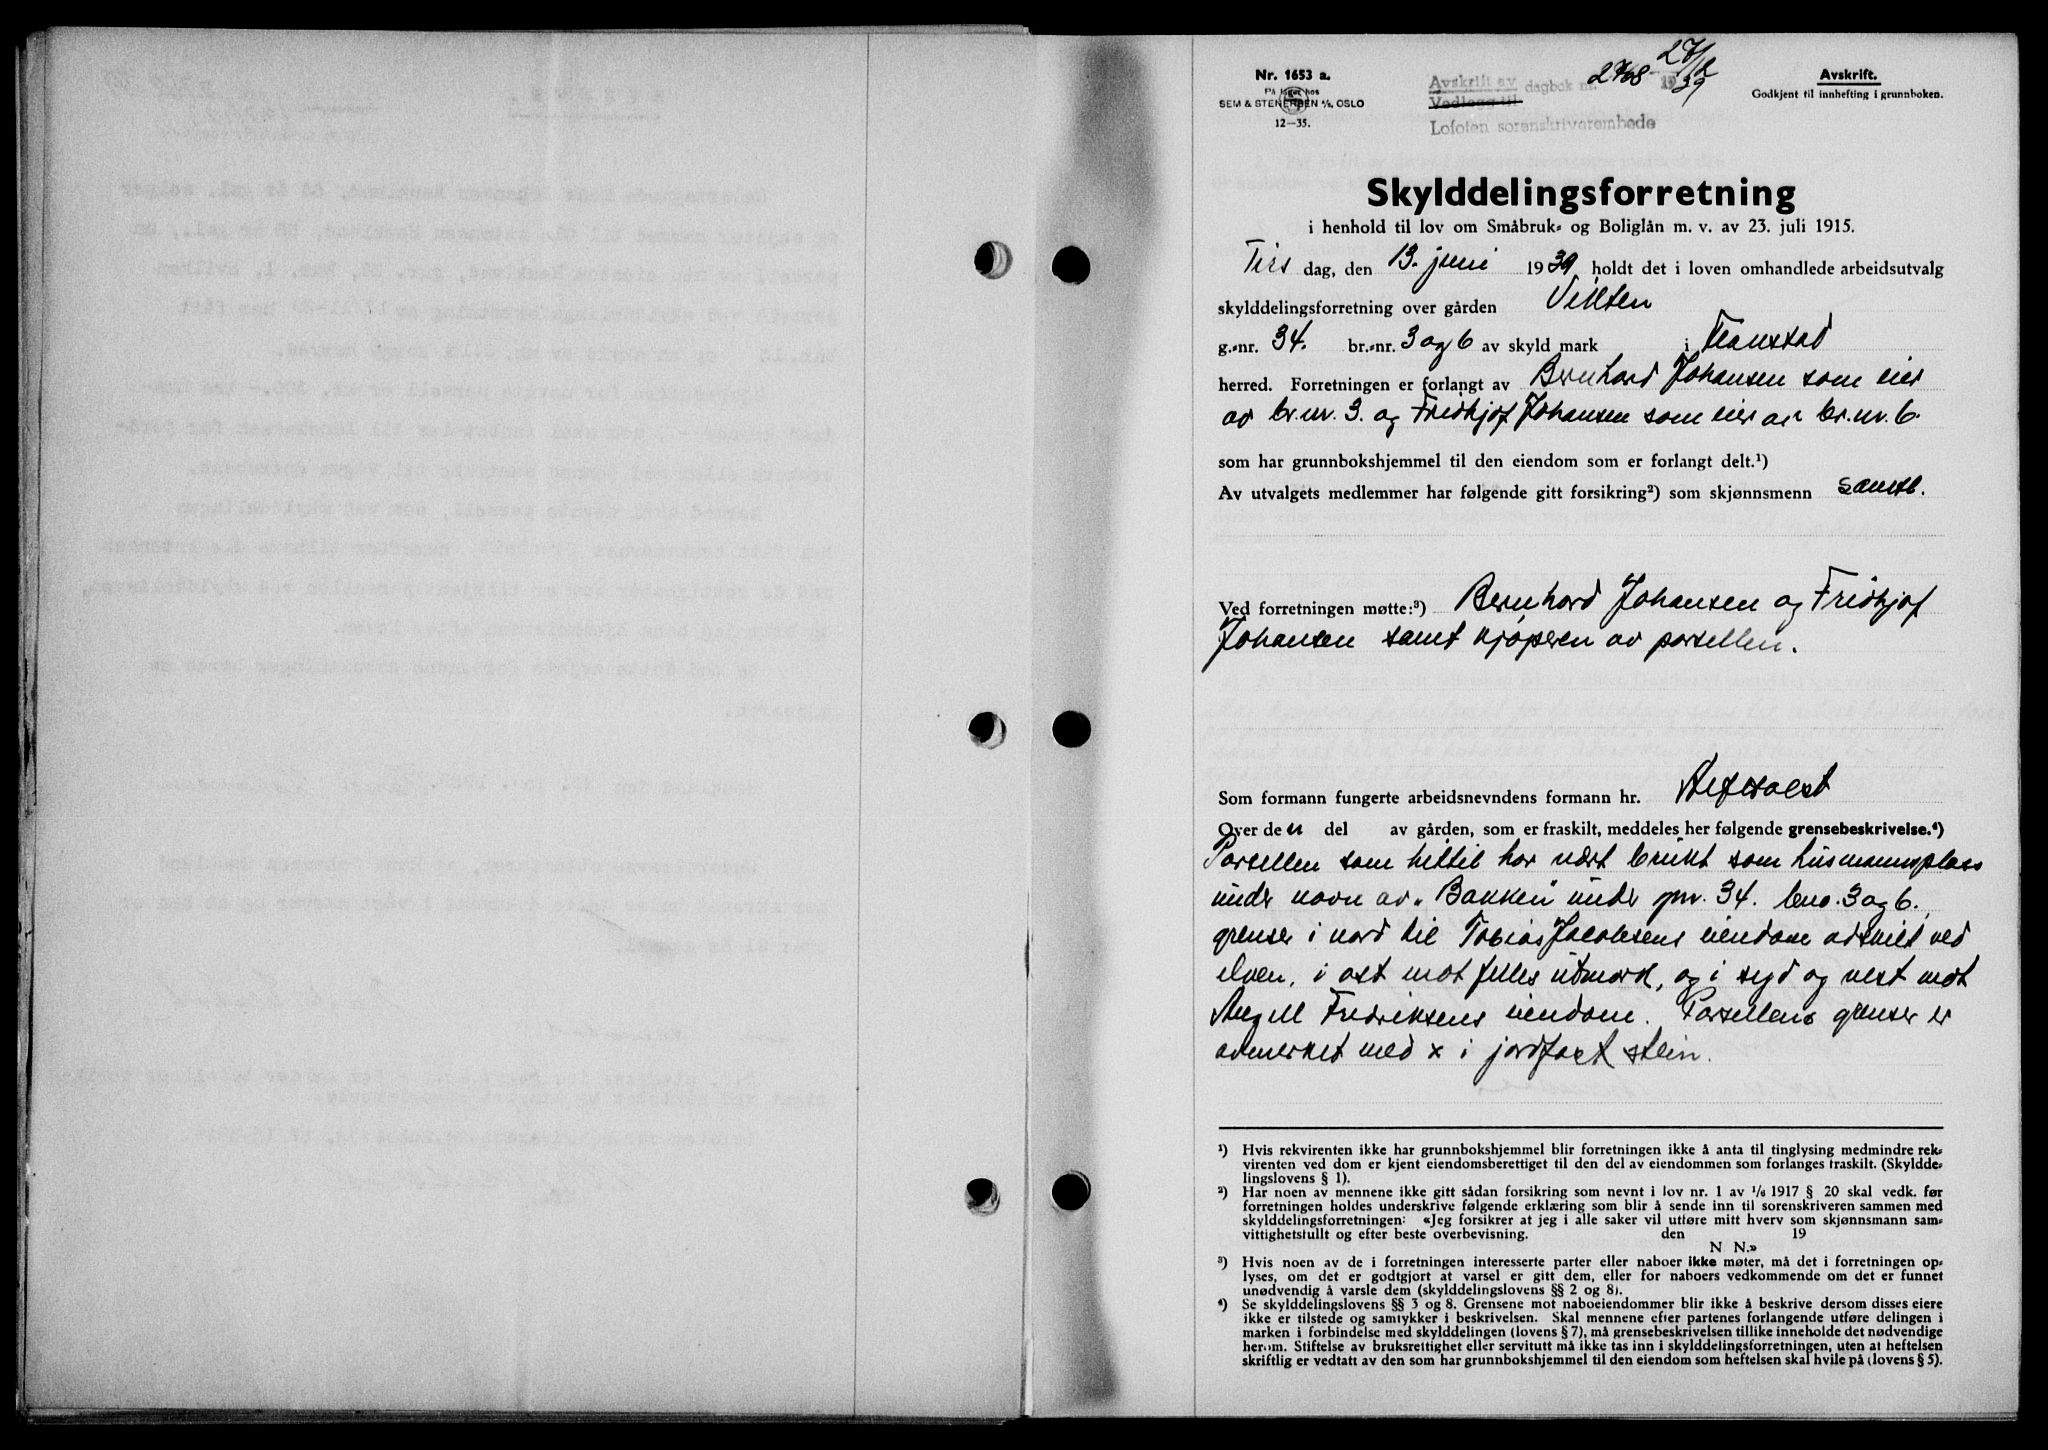 Nr. 1653 a.
På lager hos
SEM & STENERSEN A/S, OSLO
12—35.
Avskrift av
Vedlegg til dagbok nr. 2768 - 27/12 1939
Lofoten sorenskriverembede
Avskrift.
Godkjent til innhefting i grunnboken.
Skylddelingsforretning
i henhold til lov om Småbruk- og Boliglån m. v. av 23. juli 1915.
Tirs dag, den 13. juni 1939 holdt det i loven omhandlede arbeidsutvalg
skylddelingsforretning over gården Vikten
g.-nr. 34. br.-nr. 3 og 6 av skyld mark i Flakstad
herred. Forretningen er forlangt av Bernhard Johansen som eier
av br.nr. 3. og Fridtjof Johansen som eier av br.nr. 6.
som har grunnbokshjemmel til den eiendom som er forlangt delt.¹)
Av utvalgets medlemmer har følgende gitt forsikring²) som skjønnsmenn samtl.
Ved forretningen møtte:³) Bernhard Johansen og Fridtjof
Johansen samt kjøperen av parsellen.
Som formann fungerte arbeidsnevndens formann hr.
Over den del av gården, som er fraskilt, meddeles her følgende grensebeskrivelse.⁴)
Parsellen som hittil har vært brukt som husmannsplass
under navn av „Bakken" under gnr. 34. bno. 3 og 6.
grenser i nord til Tobias Jacobsens eiendom adskilt ved
elven, i ost mot felles utmark, og i syd og vest mot
Angell Fredriksens eiendom. Parsellens grenser er
avmerket med x i jordfast stein.
¹) Hvis rekvirenten ikke har grunnbokshjemmel blir forretningen ikke å anta til tinglysing medmindre rek-
virenten ved dom er kjent eiendomsberettiget til den del av eiendommen som forlanges fraskilt. (Skyldde-
lingslovens § 1).
²) Har noen av mennene ikke gitt sådan forsikring som nevnt i lov nr. 1 av 1/6 1917 § 20 skal vedk. før
forretningen holdes underskrive følgende erklæring som blir å sende inn til sorenskriveren sammen med
skylddelingsforretningen: «Jeg forsikrer at jeg i alle saker vil utføre mitt hverv som skjønnsmann sam-
vittighetsfullt og efter beste overbevisning. den 19
N N.»
³) Hvis noen av de i forretningen interesserte parter eller naboer ikke møter, må det i forretningen op-
lyses, om det er godtgjort at varsel er gitt dem, eller for naboers vedkommende om det er funnet
unødvendig å varsle dem (skylddelingslovens §§ 2 og 8).
⁴) Se skylddelingslovens §§ 3 og 8. Grensene mot naboeiendommer blir ikke å beskrive dersom disses eiere
ikke er tilstede og samtykker i beskrivelsen. Skal mennene efter partenes forlangende utføre delingen i
marken i forbindelse med skylddelingen (lovens § 7), må grensebeskrivelsen tillike inneholde det nødvendige
herom. Stiftelse av bruksrettighet eller servitutt må ikke tas inn i skylddelingsforretningen, uten at heftelsen
skriftlig er vedtatt av den som har grunnbokshjemmel til den eiendom som heftelsen skal hvile på (lovens § 5).